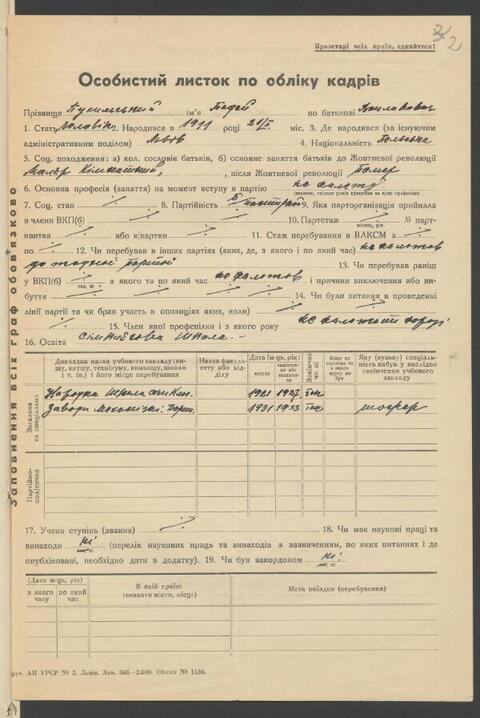 2
Пролетарі всіх країн, єднайтеся!
Особистий листок по обліку кадрів
Прізвище ім'я Тадей по батькові
1. Стать 2. Народився в 1911 році 21/X міс. 3. Де народився (за існуючим
адміністративним поділом) Львів 4. Національність
5. Соц. походження: а) кол. сословіє батьків, б) основне заняття батьків до Жовтневої революції
Маляр , після Жовтневої революції Помер
6. Основна професія (заняття) на момент вступу в партію не належу
7. Соц. стан ./. 8. Партійність 9. Яка парторганізація прийняла
в члени ВКП(б) ./. 10. Партстаж ./. № парт-
квитка ./. або к/картки ./. 11. Стаж перебування в ВЛКСМ з
по ./. 12. Чи перебував в інших партіях (яких, де, з якого і по який час) не належав
до жодної партії 13. Чи перебував раніш
у ВКП(б) ./. з якого та по який час не належав і причини виключення або ви-
буття ./. 14. Чи були хитання в проведенні
лінії партії та чи брав участь в опозиціях яких, коли) ./.
15. Член якої профспілки і з якого року не належит
16. Освіта Школа.-
Заповнення всіх граф обов'язково
Докладна назва учбового закладу (ви-
шу, втузу, технікуму, комвузу, школи
і т. ін.) і його місце перебування
Назва факуль-
тету або від-
ділу
Дата (м-ць, рік)
вступу
Яку (вузьку) спеціаль-
ність набув у наслідок
закінчення учбового
закладу
Загальна
та спеціальна
Школа 1921 1927 так
1931 1933 так шофер
Партійно-
політична
17. Учена ступінь (звання) ./. 18. Чи має наукові праці та
винаходи ні (перелік наукових праць та винаходів з зазначенням, по яких питаннях і де
опубліковані, необхідно дати в додатку). 19. Чи був закордоном ні
(Дата м-ць, рік)
з якого
часу
по який
час
В якій країні
(вказати місто, місце)
Мета поїздки (перебування)
Друк. АН УРСР № 2. Львів. Зам. 365—2.000. Обліліт № 1186.